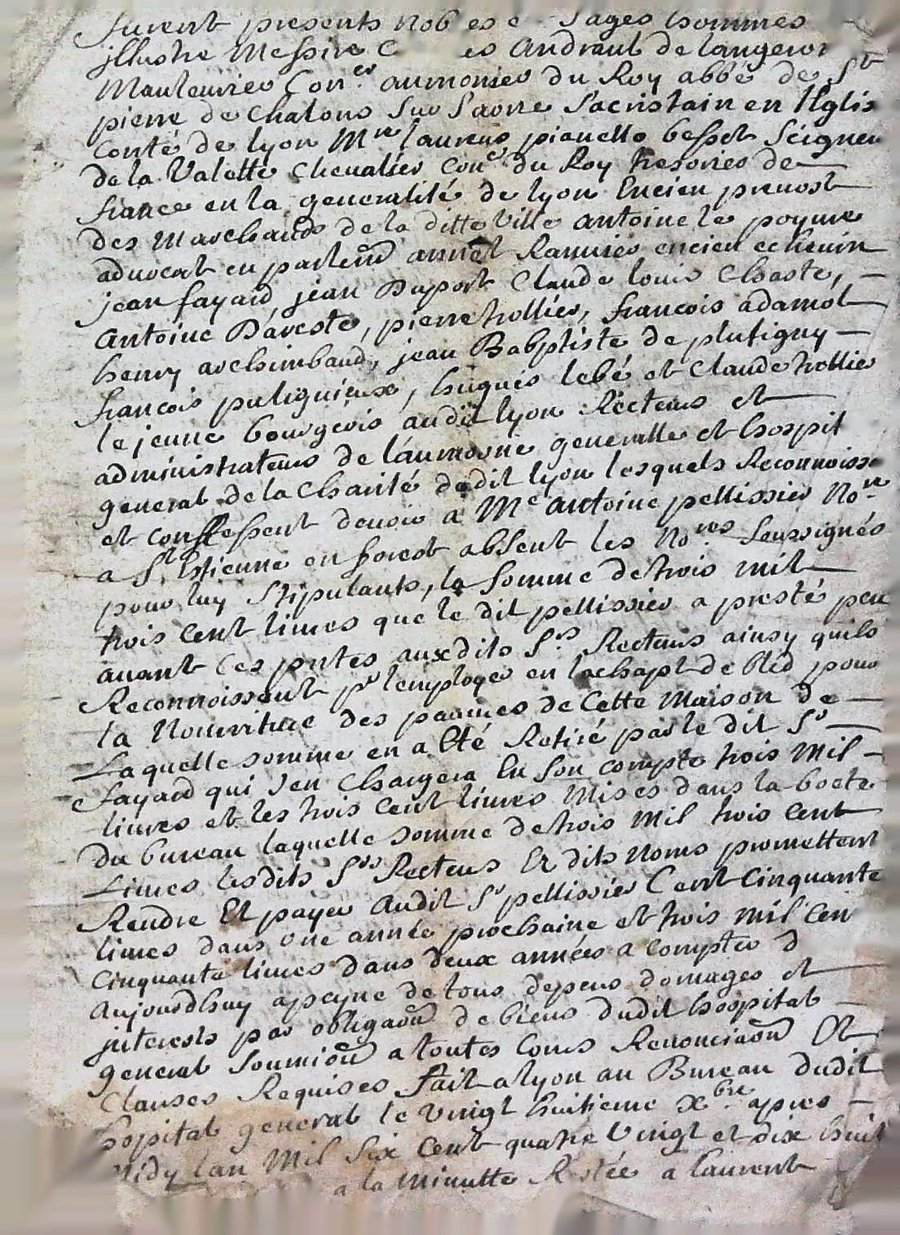 furent presents nob es e Sages hommes
jllustre Messire C es andrault de langeron
Mauleurier Con.er aumonier du Roy abbé de St
pierre de Chalons Sur Saone Sacristain en leglis
Conté de lyon Mre laurens pianello besset Seigneu
de la Valette Chevalier Con.er du Roy tresorier de
france en la generalité de lyon Encien prevost
des Marchands de la ditte Ville antoine le
advocat en parlem̄ Rannier encien echevin
jean fayard jean Duport Claude louis Chaste,
antoine Dareste, pierre hollier, françois adamol
henry archimbaud, jean Babptiste de plutigny
françois puliguieux, hugues lebé et Claude hollie
le jeune bourgeois audit lyon Recteurs et
administrateurs de laumosne generalle et hospit
general de la Charité dudit lyon lesquels Reconnoisse
et conffessent devoir a Me antoine pellissier No.re
a St Estienne en forest absent les No.res Soussignés
pour luy Stipulants, la Somme de trois mil
trois Cent liures que le dit pellissier a presté peu
auant Ces pntes auxdits Srs Recteurs ainsy quils
Reconnoissent pr lemployer en lachapt de bled pour
la Nourriture des pauures de Cette Maison de
Laquelle Somme en a Eté Retiré par le dit Sr
fayard qui sen Chargera En Son compte trois Mil
liures et les trois Cent liures Mises dans la boete
du bureau laquelle Somme de trois Mil trois Cent
Liures lesdits Srs Recteurs Ex dits noms promettent
Rendre Et payer audit Sr pellissier Cent Cinquante
liures dans une année prochaine et trois mil Cen
Cinquante liures dans deux années a compter d
aujourdhuy apeyne de tous depens domages et
jnterests par obligaōn de biens dudit hospital
general Soumiōn a toutes Cours Renonciaōn Et
Clauses Requises fait a lyon au Bureau dudit
hospital general le vingt huitieme xbre apres
Midy lan Mil Six Cent quatre Vingt et dix huit
a la Minutte Restée a laurent